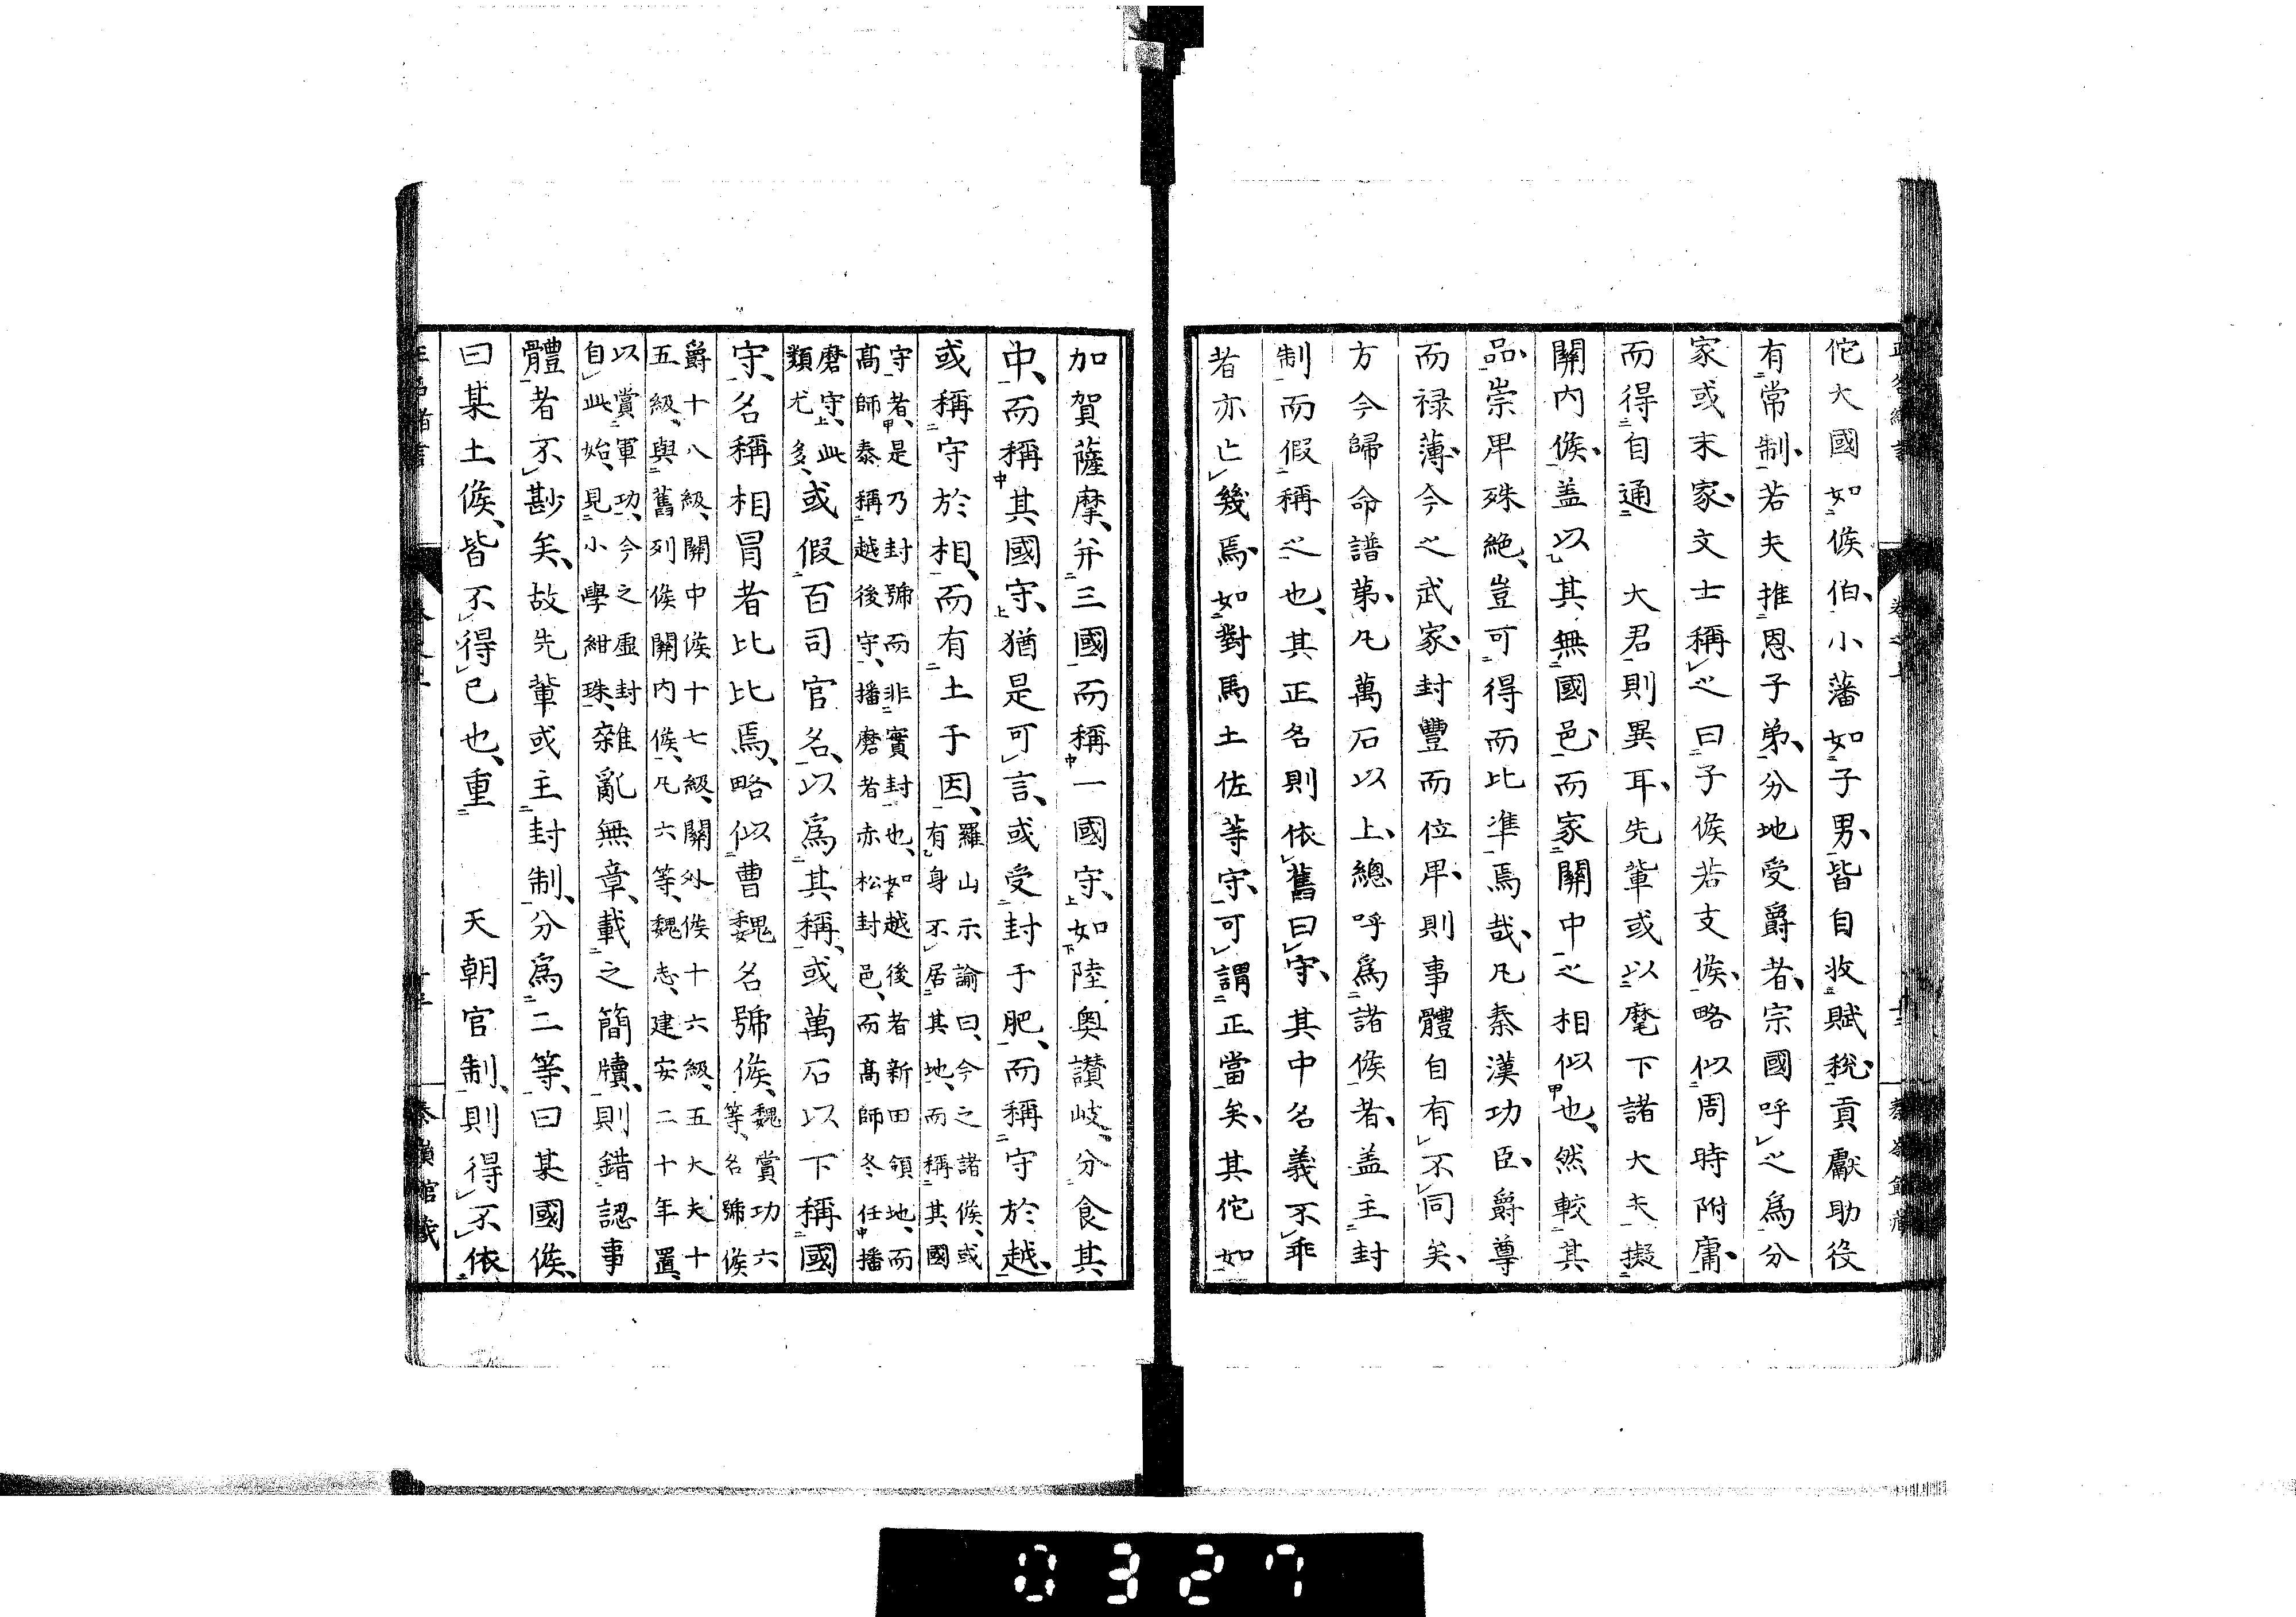 佗大國如侯伯、小藩如子男、皆自收賦稅、貢獻助役
有常制、若夫推恩子弟、分地受爵者、宗國呼之爲分
家或末家、文士稱之曰子侯若支侯、略似周時附庸、
而得自通　大君則異耳、先輩或以麾下諸大夫擬
關內侯、盖以其無國邑、而家關中之相似也、然較其
品、崇卑殊絶、豈可得而比準焉哉、凡秦漢功臣、爵尊
而祿薄、今之武家、封豐而位卑、則事體自有不同矣、
方今歸命譜第、凡萬石以上、總呼爲諸侯者、盖主封
制而假稱之也、其正名則依舊曰守、其中名義不乖
者亦亡幾焉、如對馬土佐等守、可謂正當矣、其佗如
加賀薩摩、并三國而稱一國守、如陸奧讃岐、分食其
中、而稱其國守、猶是可言、或受封于肥、而稱守於越、
或稱守於相、而有土于因、羅山示諭曰、今之諸侯、或
有身不居其地、而稱其國
守者、是乃封號而非實封也、如越後者新田領地、而
高師泰稱越後守、播磨者赤松封邑、而高師冬任播
磨守、此
類尤多、或假百司官名、以爲其稱、或萬石以下稱國
守、名稱相冒者比比焉、略似曹魏名號侯、魏賞功六
等、名號侯
爵十八級、關中侯十七級、關外侯十六級、五大夫十
五級、與舊列侯關內侯、凡六等、魏志、建安二十年置、
以賞軍功、今之虛封
自此始、見小學紺珠、雜亂無章、載之簡牘、則錯認事
體者不尠矣、故先輩或主封制、分爲二等、曰某國侯、
曰某土侯、皆不得已也、重　天朝官制、則得不依
0327